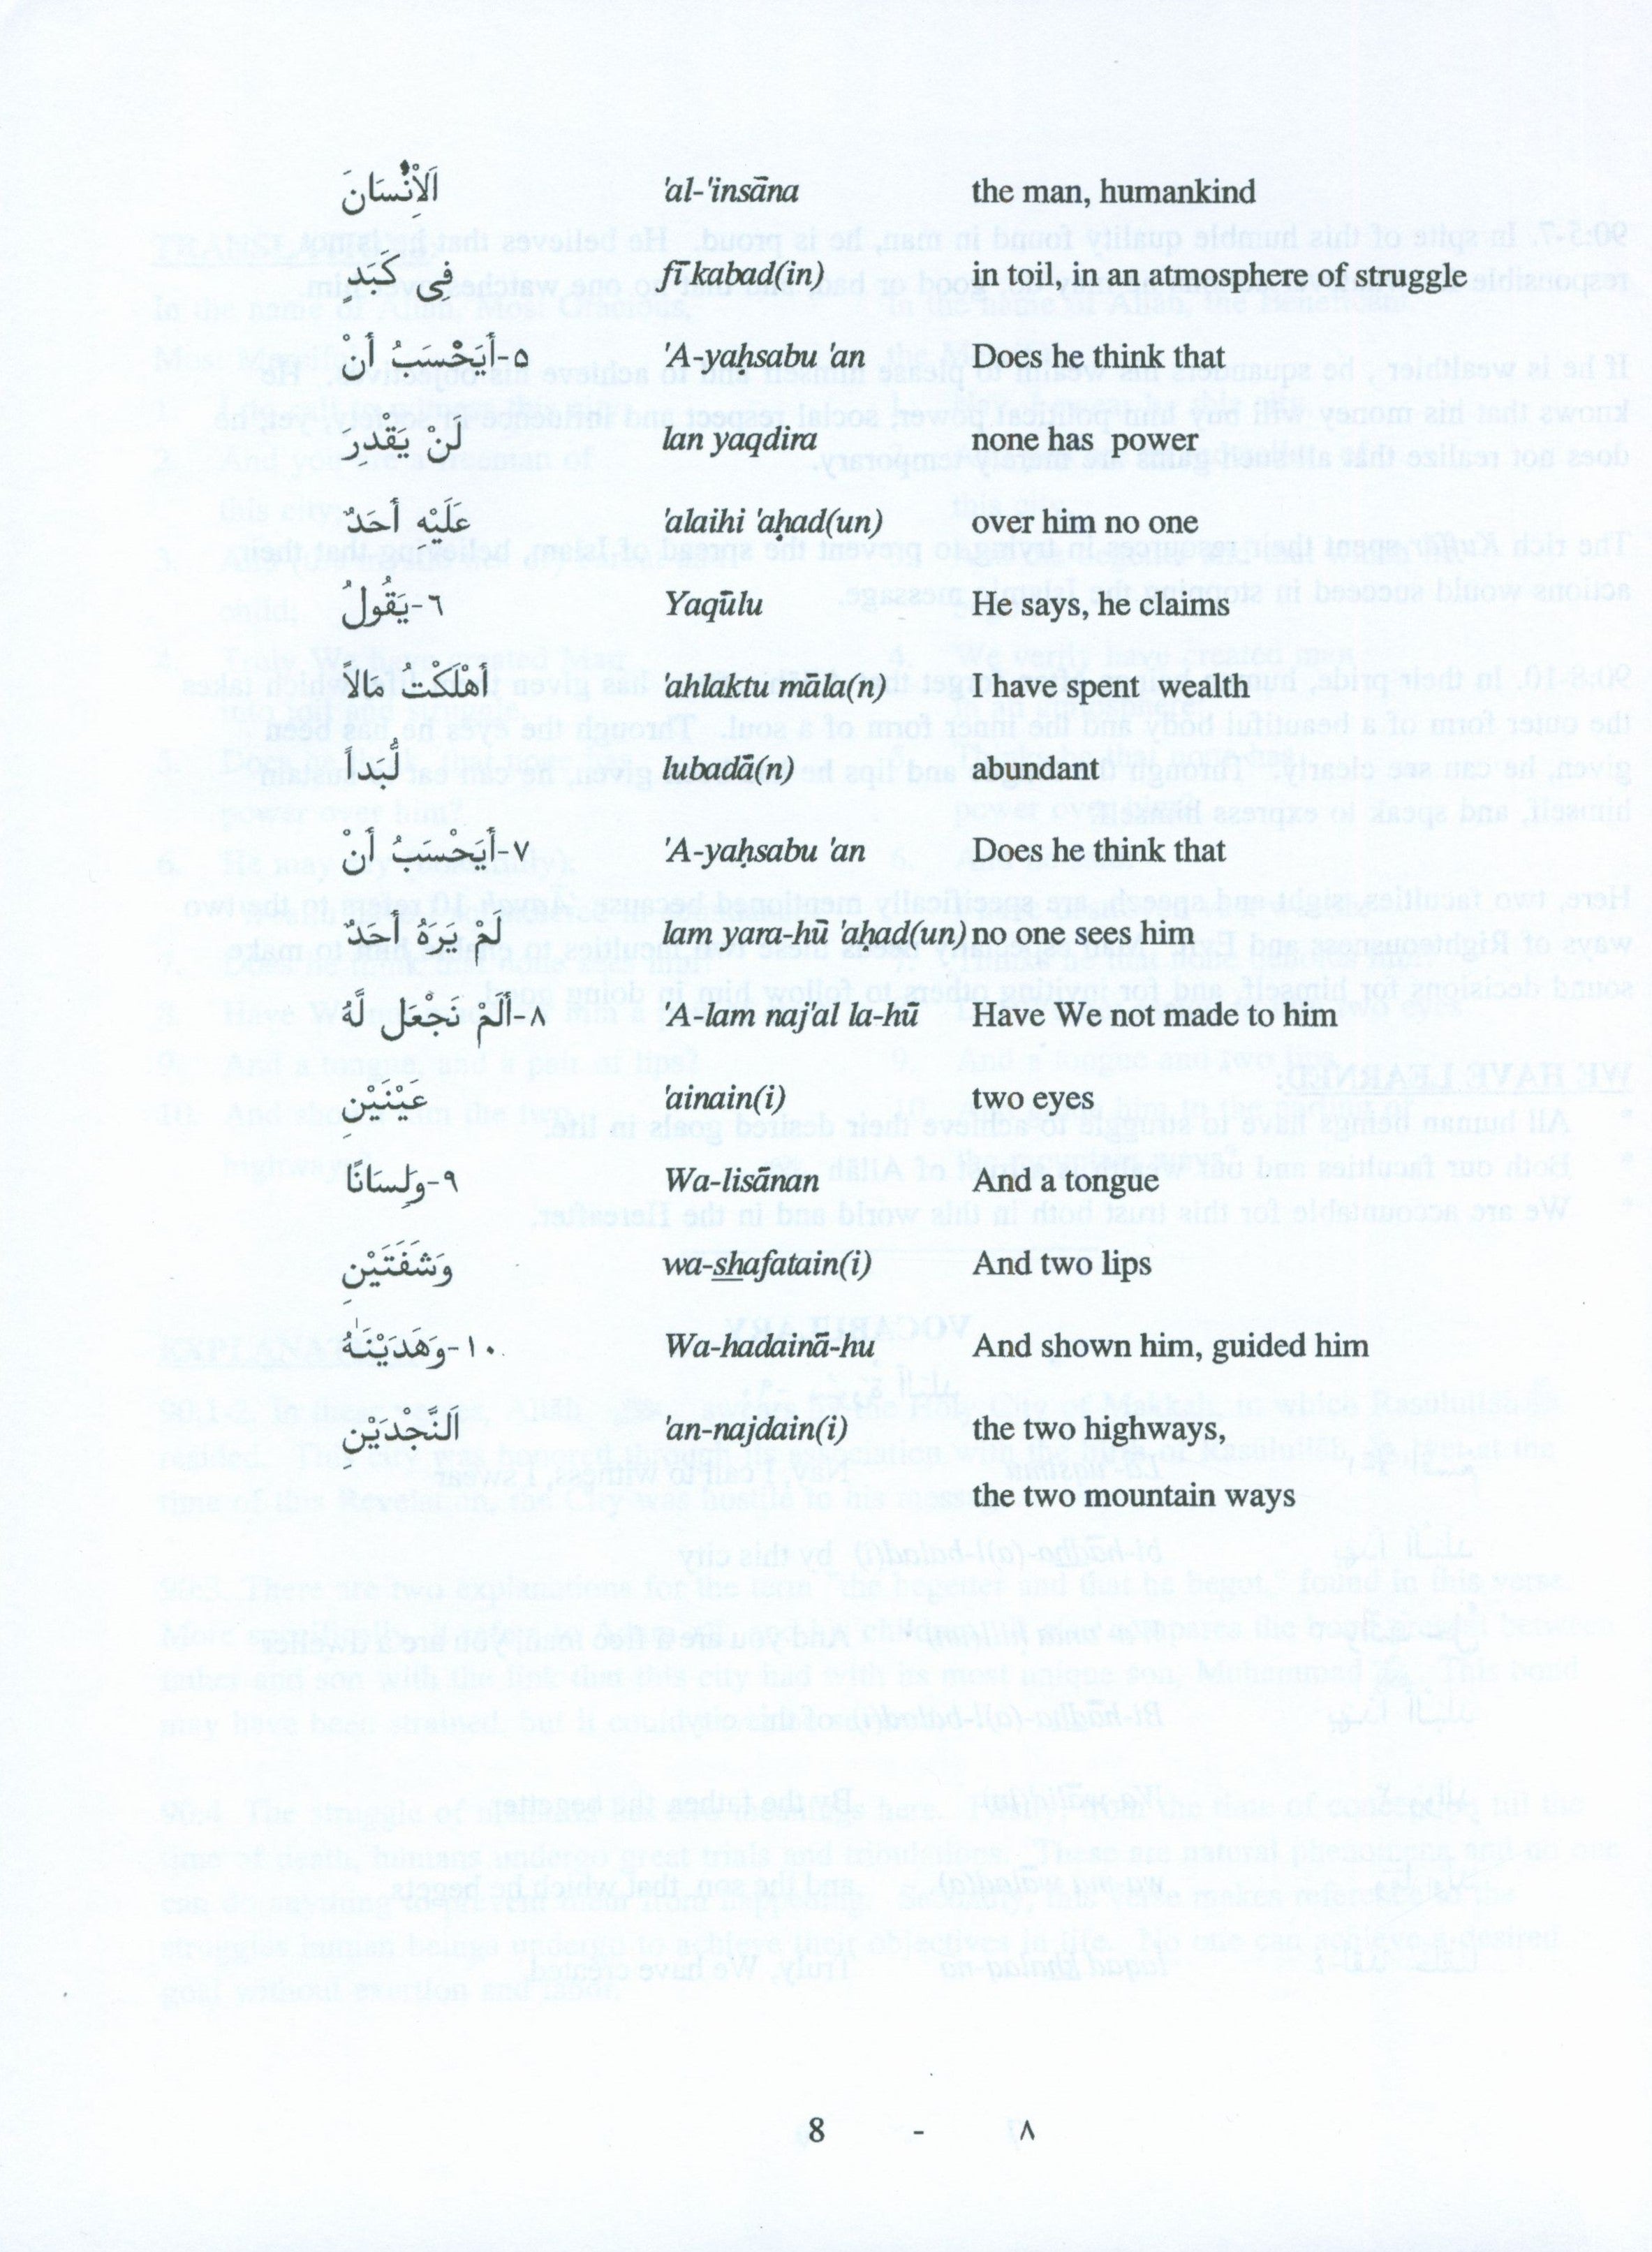 اَلْاِنْسَانَ 'al-'insāna the man, humankind
فِى كَبَدٍ fī kabad(in) in toil, in an atmosphere of struggle
٥-أَيَحْسَبُ أَنْ 'A-yaḥsabu 'an Does he think that
لَنْ يَقْدِرَ lan yaqdira none has power
عَلَيْهِ أَحَدٌ 'alaihi 'aḥad(un) over him no one
٦-يَقُولُ Yaqūlu He says, he claims
أَهْلَكْتُ مَالاً 'ahlaktu māla(n) I have spent, wealth
لُّبَداً lubadā(n) abundant
٧-أَيَحْسَبُ أَنْ 'A-yaḥsabu 'an Does he think that
لَمْ يَرَهُ أَحَدٌ lam yara-hū 'aḥad(un) no one sees him
٨-أَلَمْ نَجْعَل لَّهُ 'A-lam naj'al la-hū Have We not made to him
عَيْنَيْنِ 'ainain(i) two eyes
٩-وَلِسَانًا Wa-lisānan And a tongue
وَشَفَتَيْنِ wa-shafatain(i) And two lips
١٠-وَهَدَيْنَٰهُ Wa-hadainā-hu And shown him, guided him
اَلنَّجْدَيْنِ 'an-najdain(i) the two highways,
the two mountain ways
8 - ٨